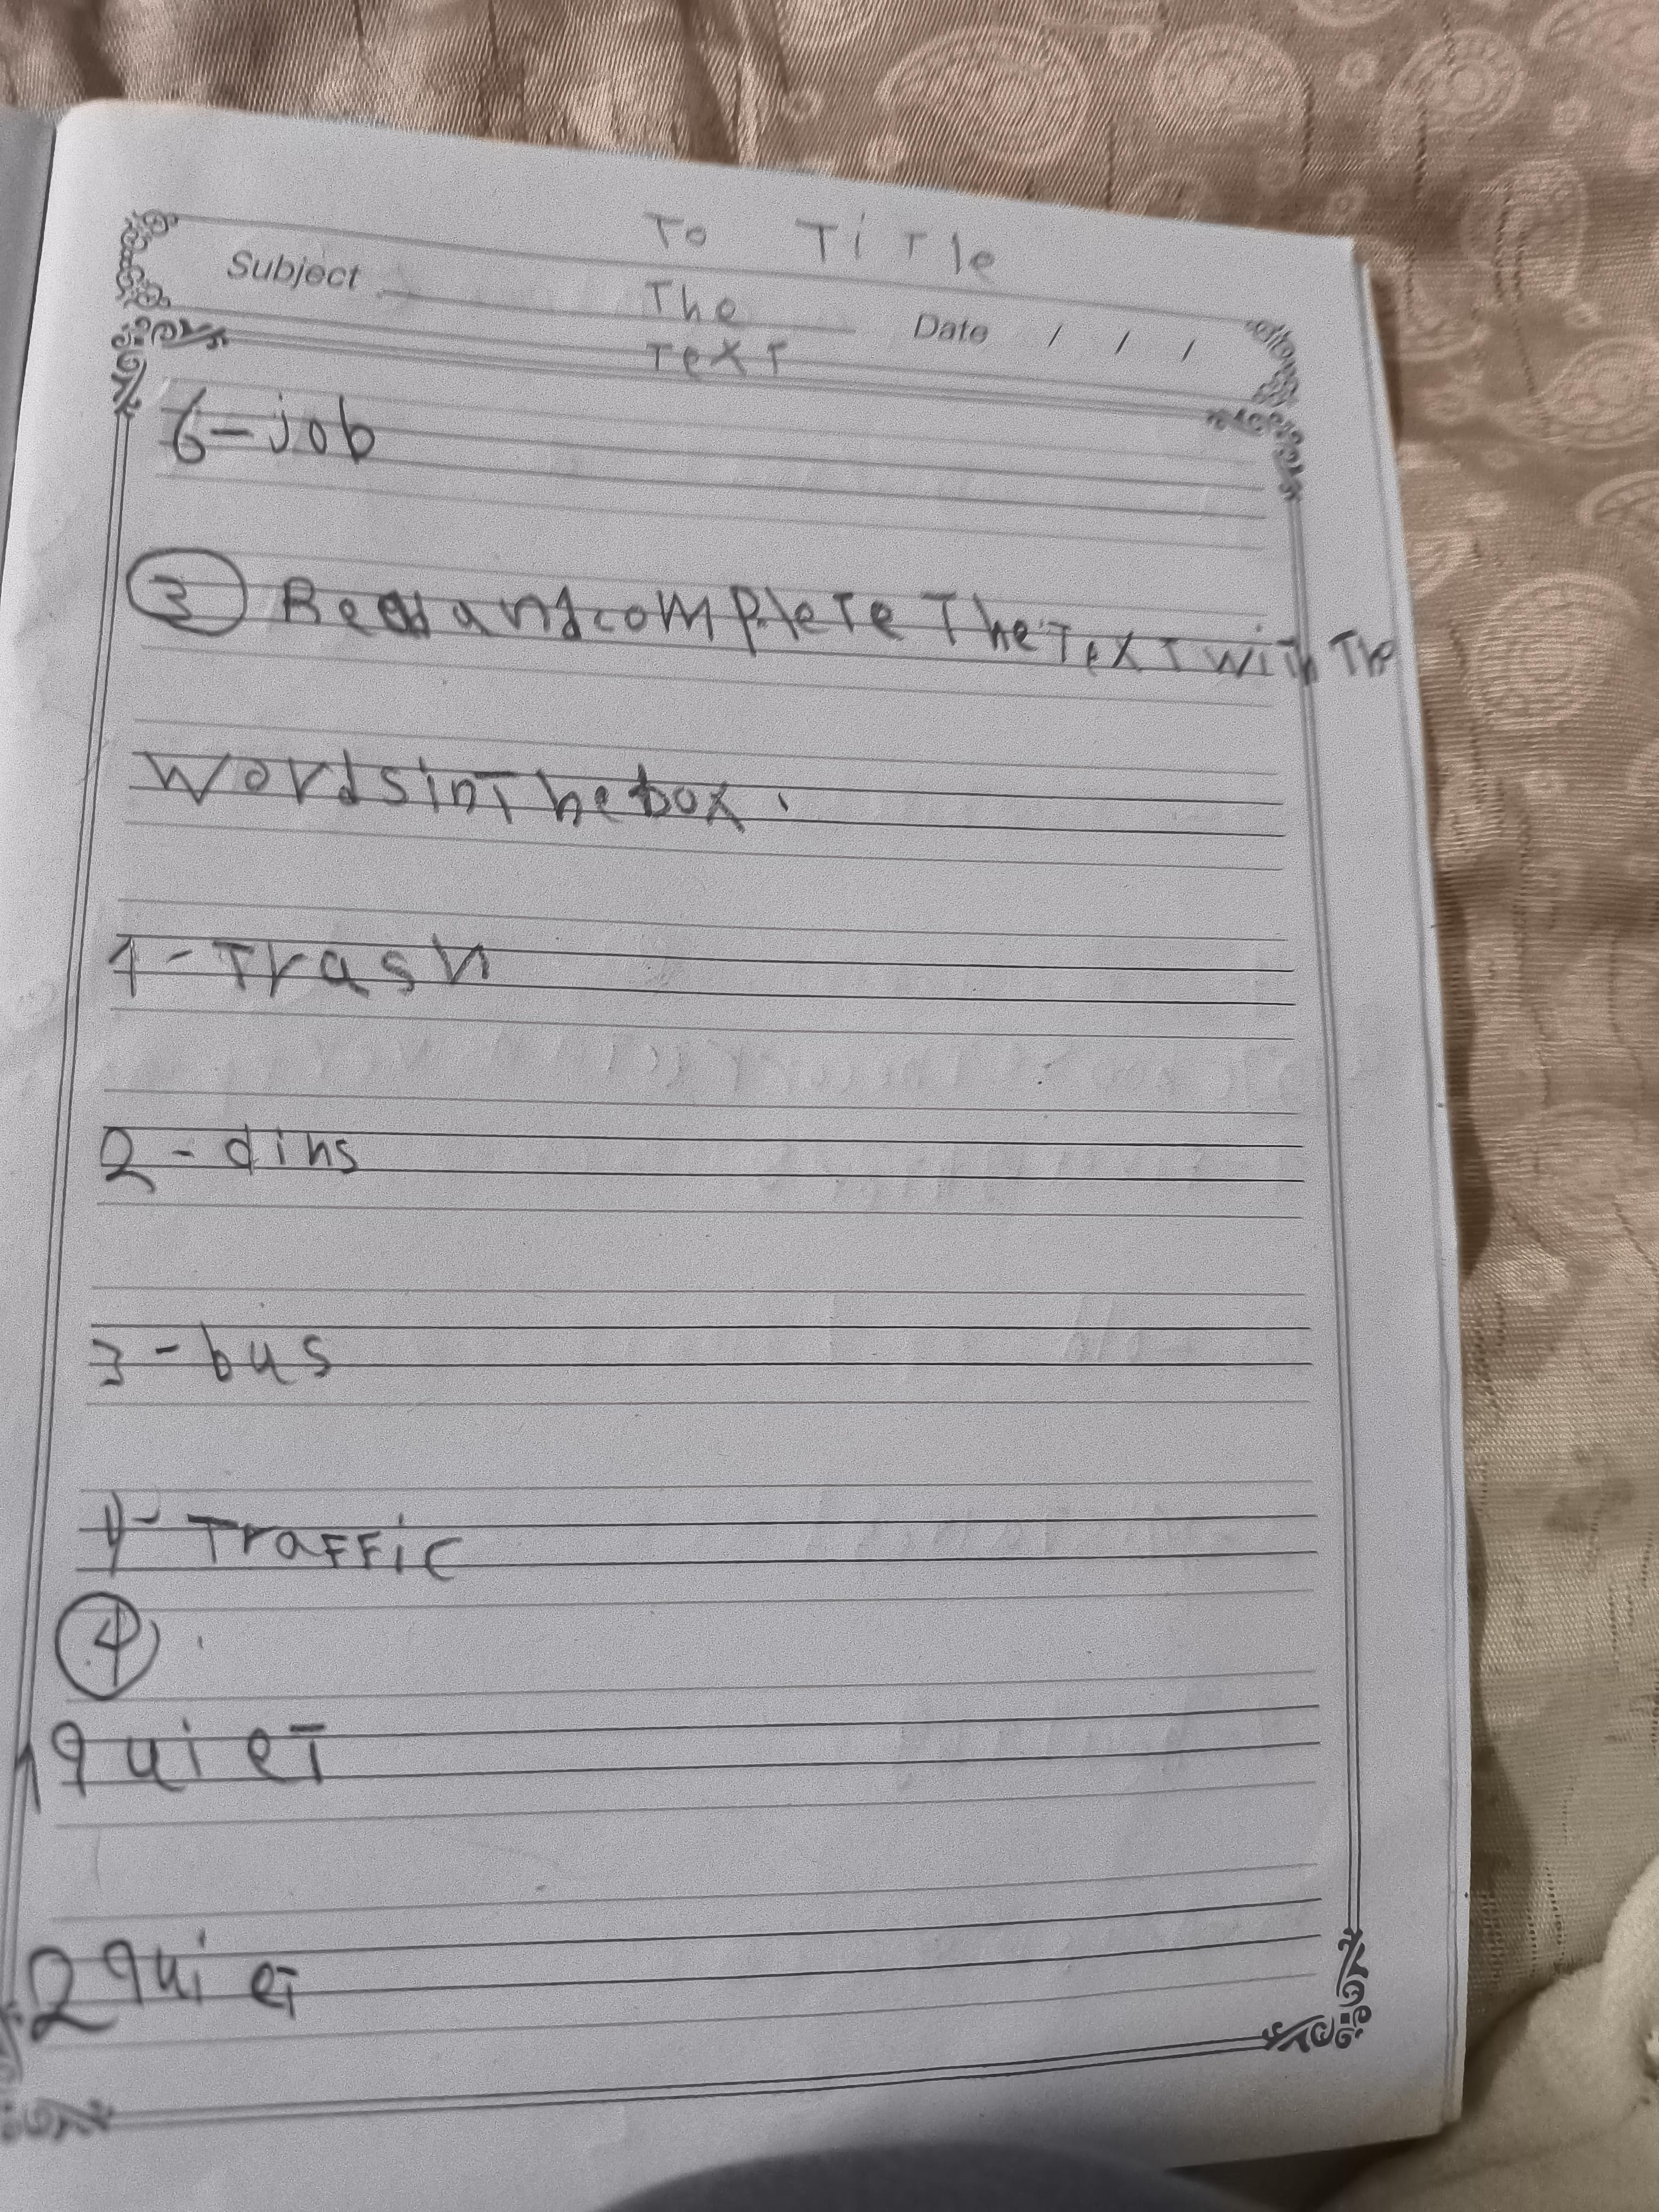 To Title
Subject The Date / / /
Text
6-job
3 Read and complete The Text with The
words in The box.
1-Trash
2-dins
3-bus
4-Traffic
4
1 quiet
2 quiet